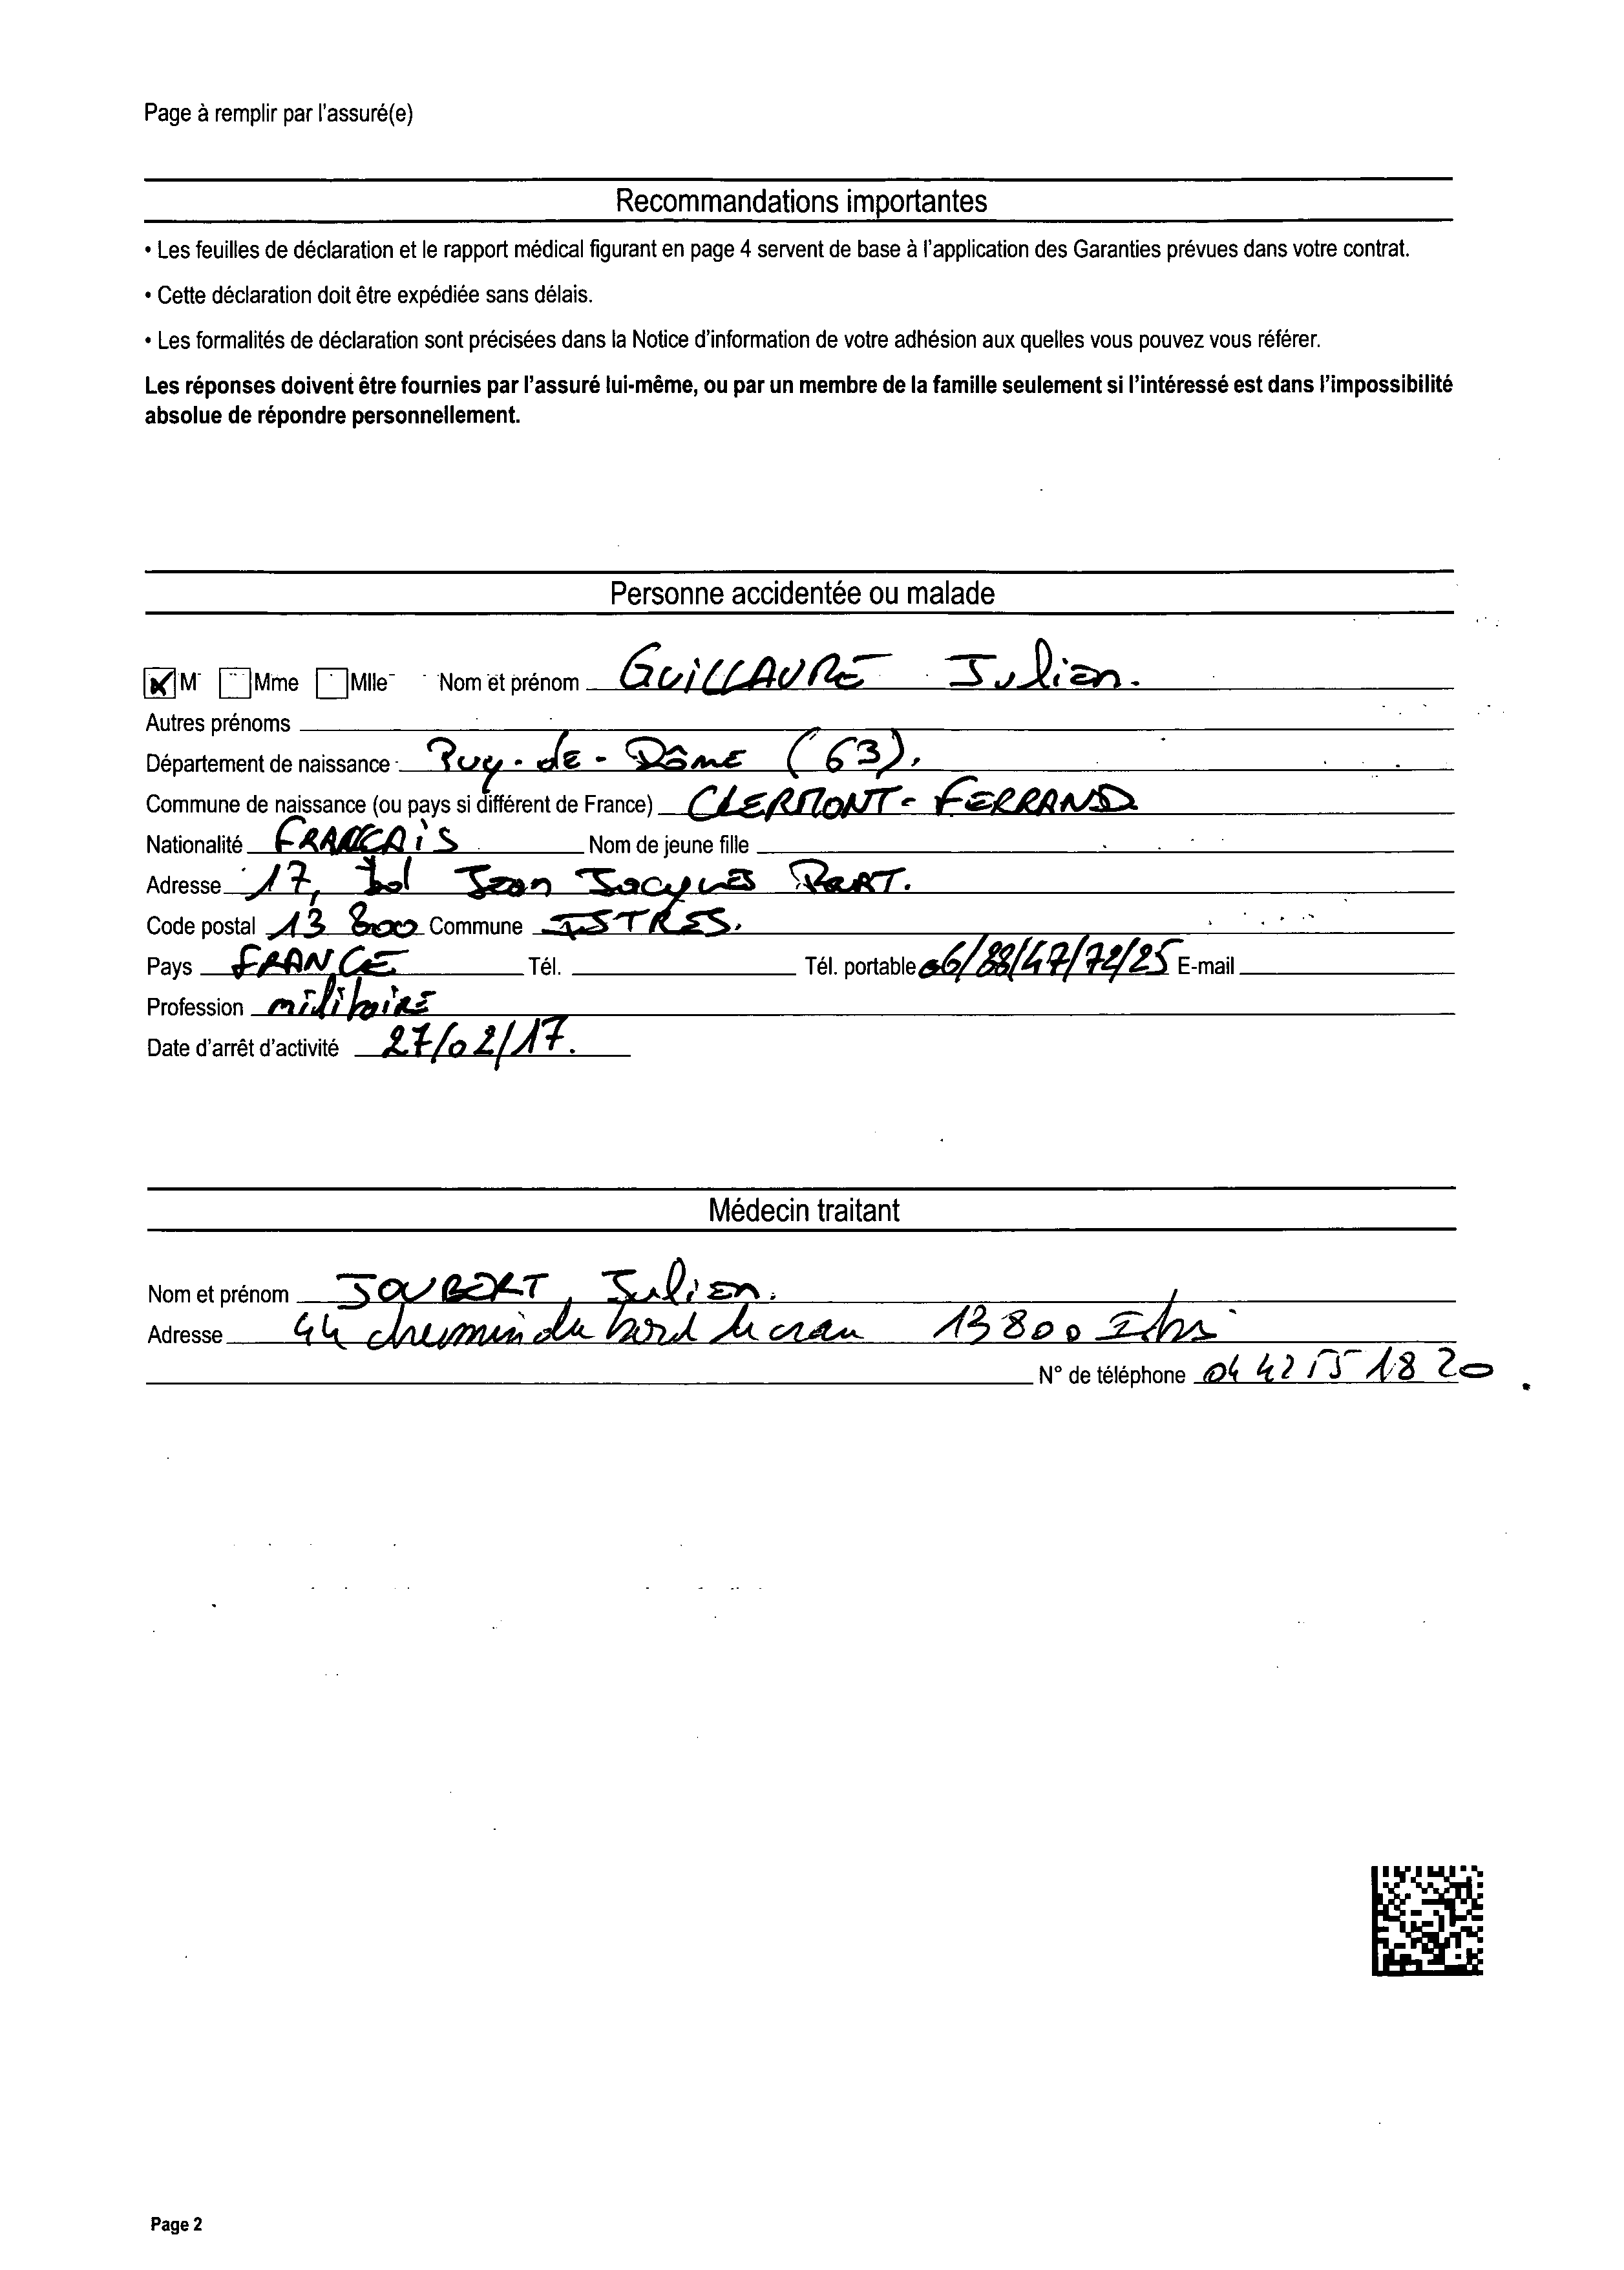 Page à remplir par l'assuré(e)
Recommandations importantes
• Les feuilles de déclaration et le rapport médical figurant en page 4 servent de base à l'application des Garanties prévues dans votre contrat.
• Cette déclaration doit être expédiée sans délais.
• Les formalités de déclaration sont précisées dans la Notice d'information de votre adhésion aux quelles vous pouvez vous référer.
Les réponses doivent être fournies par l'assuré lui-même, ou par un membre de la famille seulement si l'intéressé est dans l'impossibilité
absolue de répondre personnellement.
Personne accidentée ou malade
M Mme Mlle Nom et prénom GUILLAURE Julien.
Autres prénoms
Département de naissance Puy-de-Dôme (63).
Commune de naissance (ou pays si différent de France) CLERMONT-FERRAND
Nationalité FRANCAIS Nom de jeune fille
Adresse 17, bol Jean Jacques
Code postal 13 800 Commune ISTRES.
Pays FRANCE Tél. Tél. portable 06/88/47/72/25 E-mail
Profession militaire
Date d'arrêt d'activité 27/02/17.
Médecin traitant
Nom et prénom JOUBERT Julien.
Adresse 44 chemin du 13800
N° de téléphone 04 42 55 18 20
Page 2